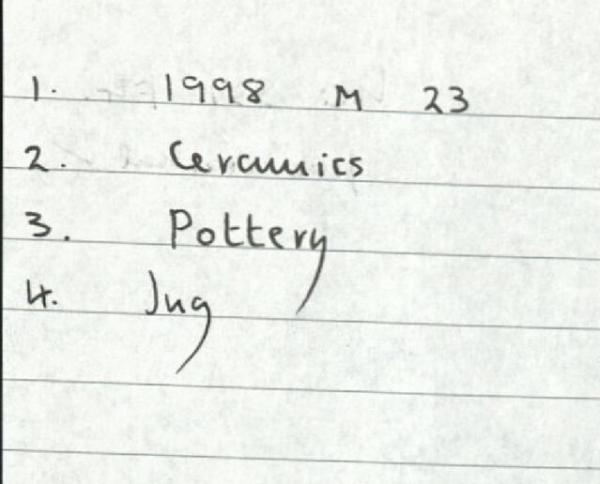 1. 1998 M 23
2. Ceramics
3. Pottery
4. Jug